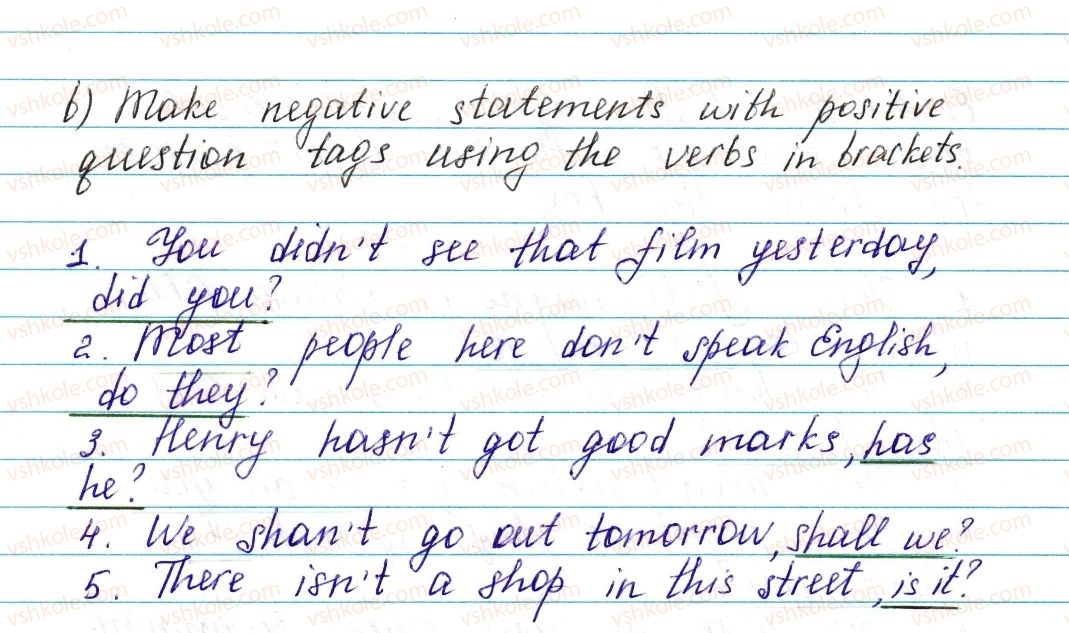 b) Make negative statements with positive
question tags using the verbs in brackets.
1. You didn't see that film yesterday,
did you?
2. Most people here don't speak English,
do they?
3. Henry hasn't got good marks, has
he?
4. We shan't go out tomorrow, shall we?
5. There isn't a shop in this street, is it?